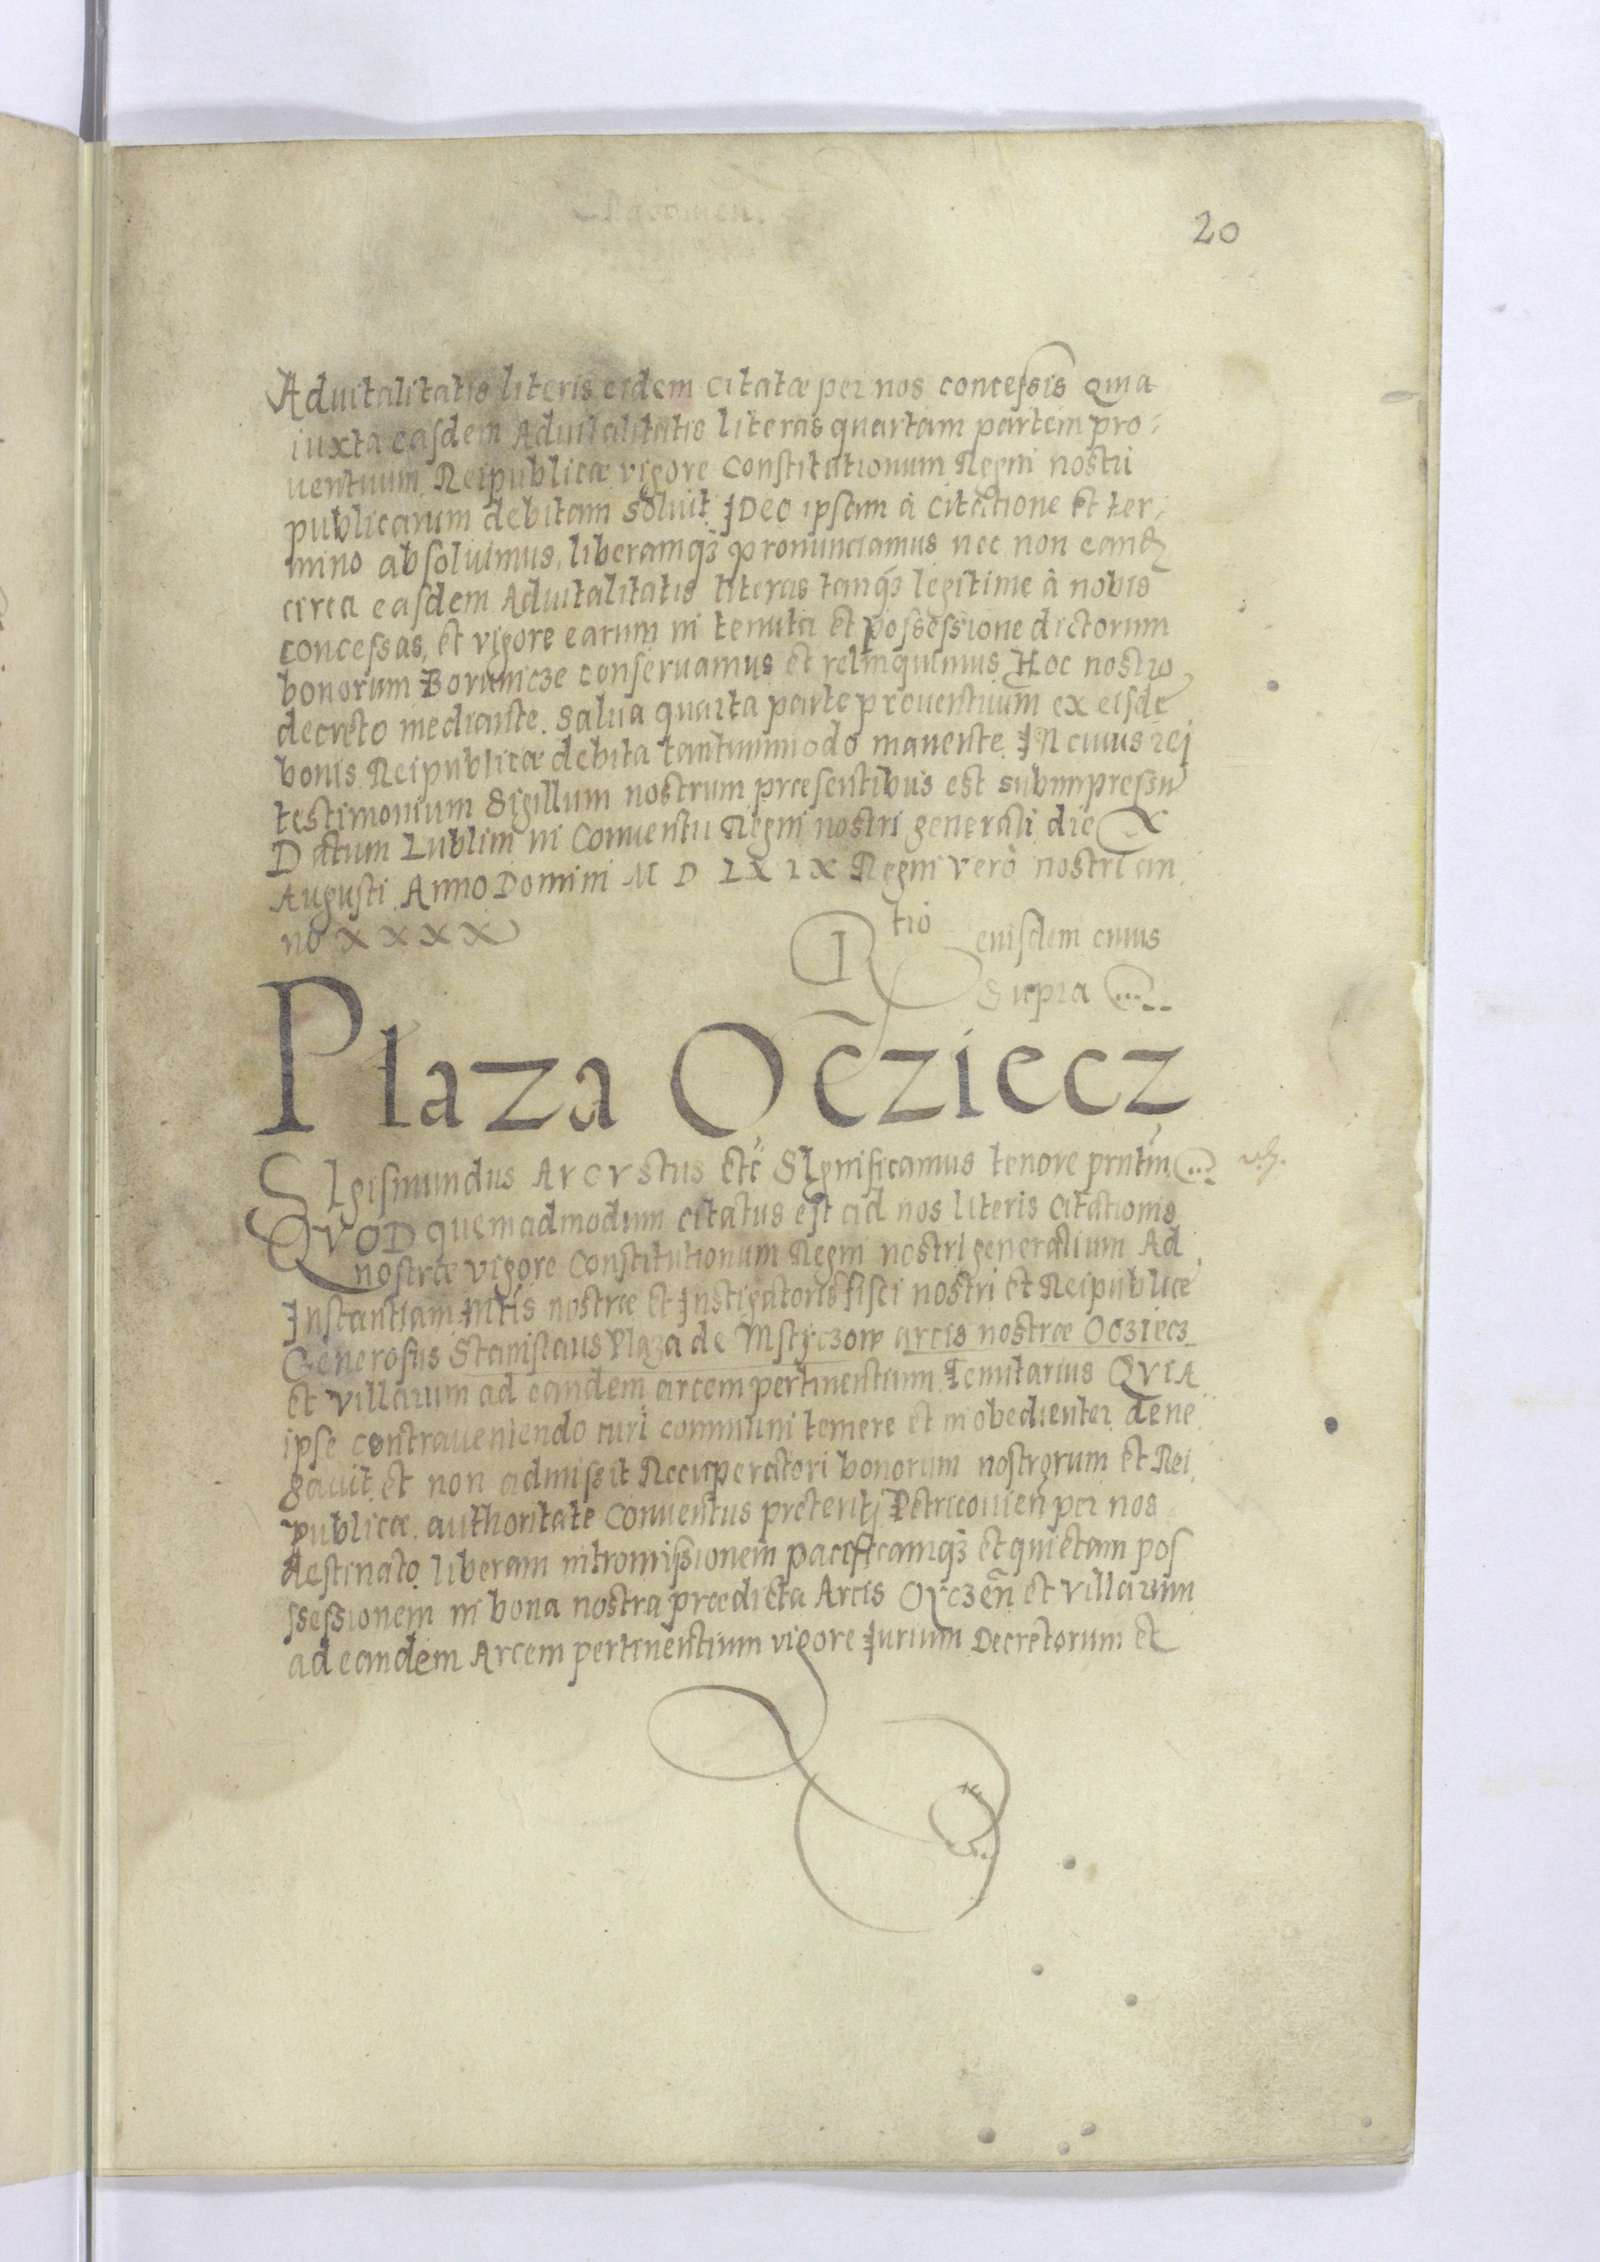 20
Aduitalitatis literis eidem citatæ per nos concessis Quia
iuxta easdem Aduitalitatis literas quartam partem pro:
uentuum Reipublicæ vigore Constitutionum Regni nostri
publicarum debitam soluit IDEO ipsam à citatione et ter:
mino absoluimus, liberamq₃ pronunciamus nec non eandē
circa easdem Aduitalitatis literas tanq₃ legitime à nobis
concessas, et vigore earum in tenuta et possessione dictorum
bonorum Borunicze conseruamus et relinquimus Hoc nostro
decreto mediante. Salua quarta parte prouentuum ex eisdē
bonis Reipublicæ debita tantummodo manente. In cuius rej
testimonium Sigillum nostrum præsentibus est subimpressū
Datum Lublini in Conuentu Regni nostri generali die X
Augusti Anno Domini M D LXIX Regni verò nostri an
no XXXX
Rtiō eiusdem cuius
supra
Plaza Oc̄ziecz
SIgismundus AVGVStus etc̄ SIgnificamus tenore pn̄tiu
QVOD quemadmodum citatus est ad nos literis citationis
nostræ vigore Constitutionum Regni nostri generalium Ad
Instantiam Mtis nostræ et Instigatoris fisci nostri et Reipublicæ
Generosus Stanislaus Plaza de Mstyczow arcis nostræ Ocziecz
et villarum ad eandem arcem pertinentium Tenutarius QVIA
ipse contraueniendo iuri communi temere et inobedienter dene
gauit et non admissit Recuperatori bonorum nostrorum et Rei
publicæ authoritate Conuentus preteritj Petricouien̄ per nos
destinato liberam intromissionem pacificamq₃ et quietam pos
ssessionem in bona nostra prædicta Arcis Oyczen̄ et villarum
ad eandem Arcem pertinentium vigore Iurium Decretorum et